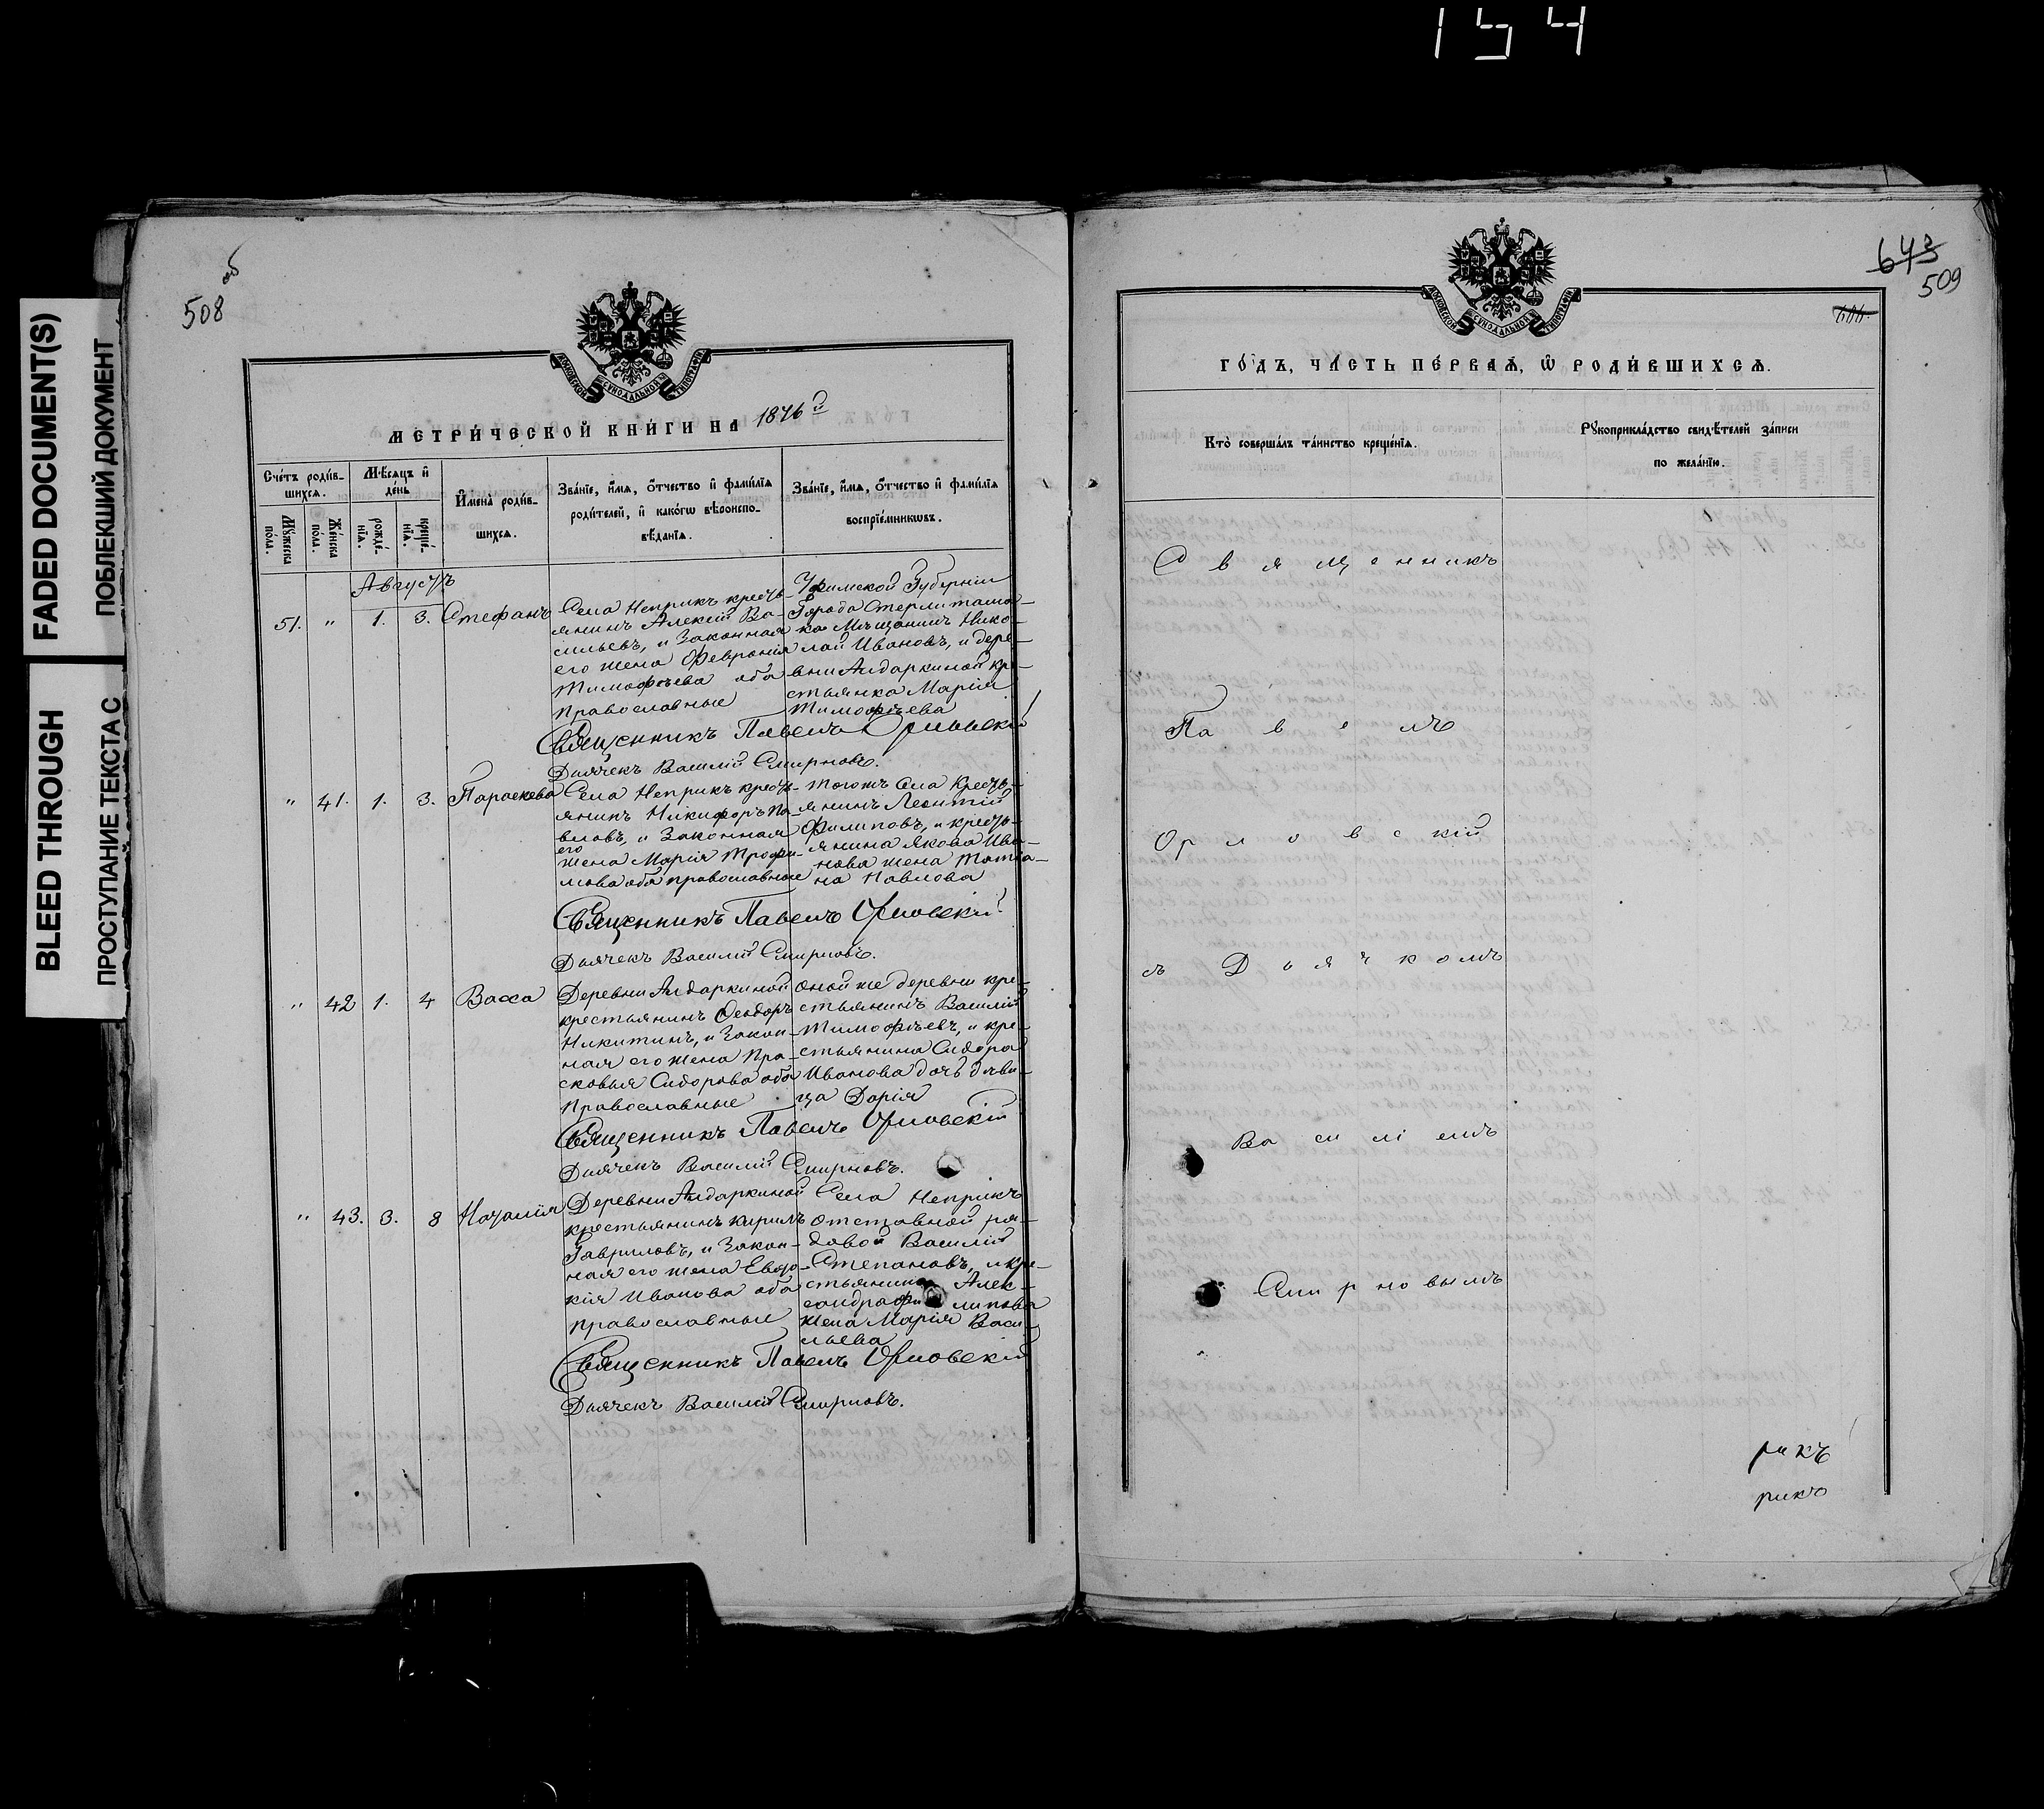 154
FADED DOCUMENT(S)
ПОБЛЕКШИЙ ДОКУМЕНТ
BLEED THROUGH
ПРОСТУПАНИЕ ТЕКСТА С
508 об
МОСКОВСКОЙ СѴНОДАЛЬНОЙ ТИПОГРАФІИ
МЕТРИ́ЧЕСКОЙ КНИ́ГИ НА 1876й
Сче́тъ роди́в-
шихсѧ.
Мѣ́сѧцъ и҆
де́нь
И҆мена̀ роди́в-
шихсѧ.
Зва́нїе, и҆́мѧ, ѻ҆́тчество и҆ фамилїѧ
роди́телей, и҆ како́гѡ вѣроиспо-
вѣ́данїѧ.
Зва́нїе, и҆́мѧ, ѻ҆́тчество и҆ фамилїѧ
воспрїе́мникѡвъ.
Мꙋ́жеска
по́ла.
Же́нска
по́ла.
рожде́-
нїѧ.
креще́-
нїѧ.
Августъ
51. " 1. 3. Стефанъ
Села Неприкъ кресть-
янинъ Алексій Ва-
сильевъ, и Законная
его жена Февронія
Тимофѣева оба
православные
Уфимской Губерніи
Города Стерлитама-
ка Мѣщанинъ Нико-
лай Ивановъ, и дере-
вни Андаркиной кре-
стьянка Марія
Тимофѣева
Священникъ Павелъ Орловскій
Дьячекъ Василій Смирновъ.
" 41. 1. 3. Параскева
Села Неприкъ кресть-
янинъ Никифоръ Па-
вловъ, и Законная
его
жена Марія Трофи-
мова оба православные
Того жъ Села Кресть-
янинъ Леонтій
Филиповъ, и кресть-
янина Якова Ива-
нова жена Татья-
на Павлова
Священникъ Павелъ Орловскій
Дьячекъ Василій Смирновъ.
" 42 1. 4 Васса
Деревни Андаркиной
крестьянинъ Ѳеодоръ
Никитинъ, и Закон-
ная его жена Пра-
сковья Сидорова оба
православные
Оной же деревни кре-
стьянинъ Василій
Тимофѣевъ, и кре-
стьянина Сидора
Иванова дочь дѣви-
ца Дарія
Священникъ Павелъ Орловскій
Дьячекъ Василій Смирновъ.
" 43. 3. 8 Наталія
Деревни Андаркиной
крестьянинъ Кирилъ
Гавриловъ, и Закон-
ная его жена Евдо-
кія Иванова оба
православные
Села Неприкъ
отставной ря-
довой Василій
Степановъ, и кре-
стьянина Алек-
сандра Филипова
жена Марія Васи-
льева
Священникъ Павелъ Орловскій
Дьячекъ Василій Смирновъ.
643
509
МОСКОВСКОЙ СѴНОДАЛЬНОЙ ТИПОГРАФІИ
ГО́ДЪ, ЧА́СТЬ ПЕ́РВАѦ, Ѡ҆ РОДИ́ВШИХСѦ.
Кто̀ соверша́лъ та́инство креще́нїѧ.
Рꙋкоприкла́дство свидѣ́телей за́писи
по жела́нїю.
Священникъ
Павелъ
Орловскій
съ Дьячкомъ
Василіемъ
Смирновымъ
рикъ
рикъ